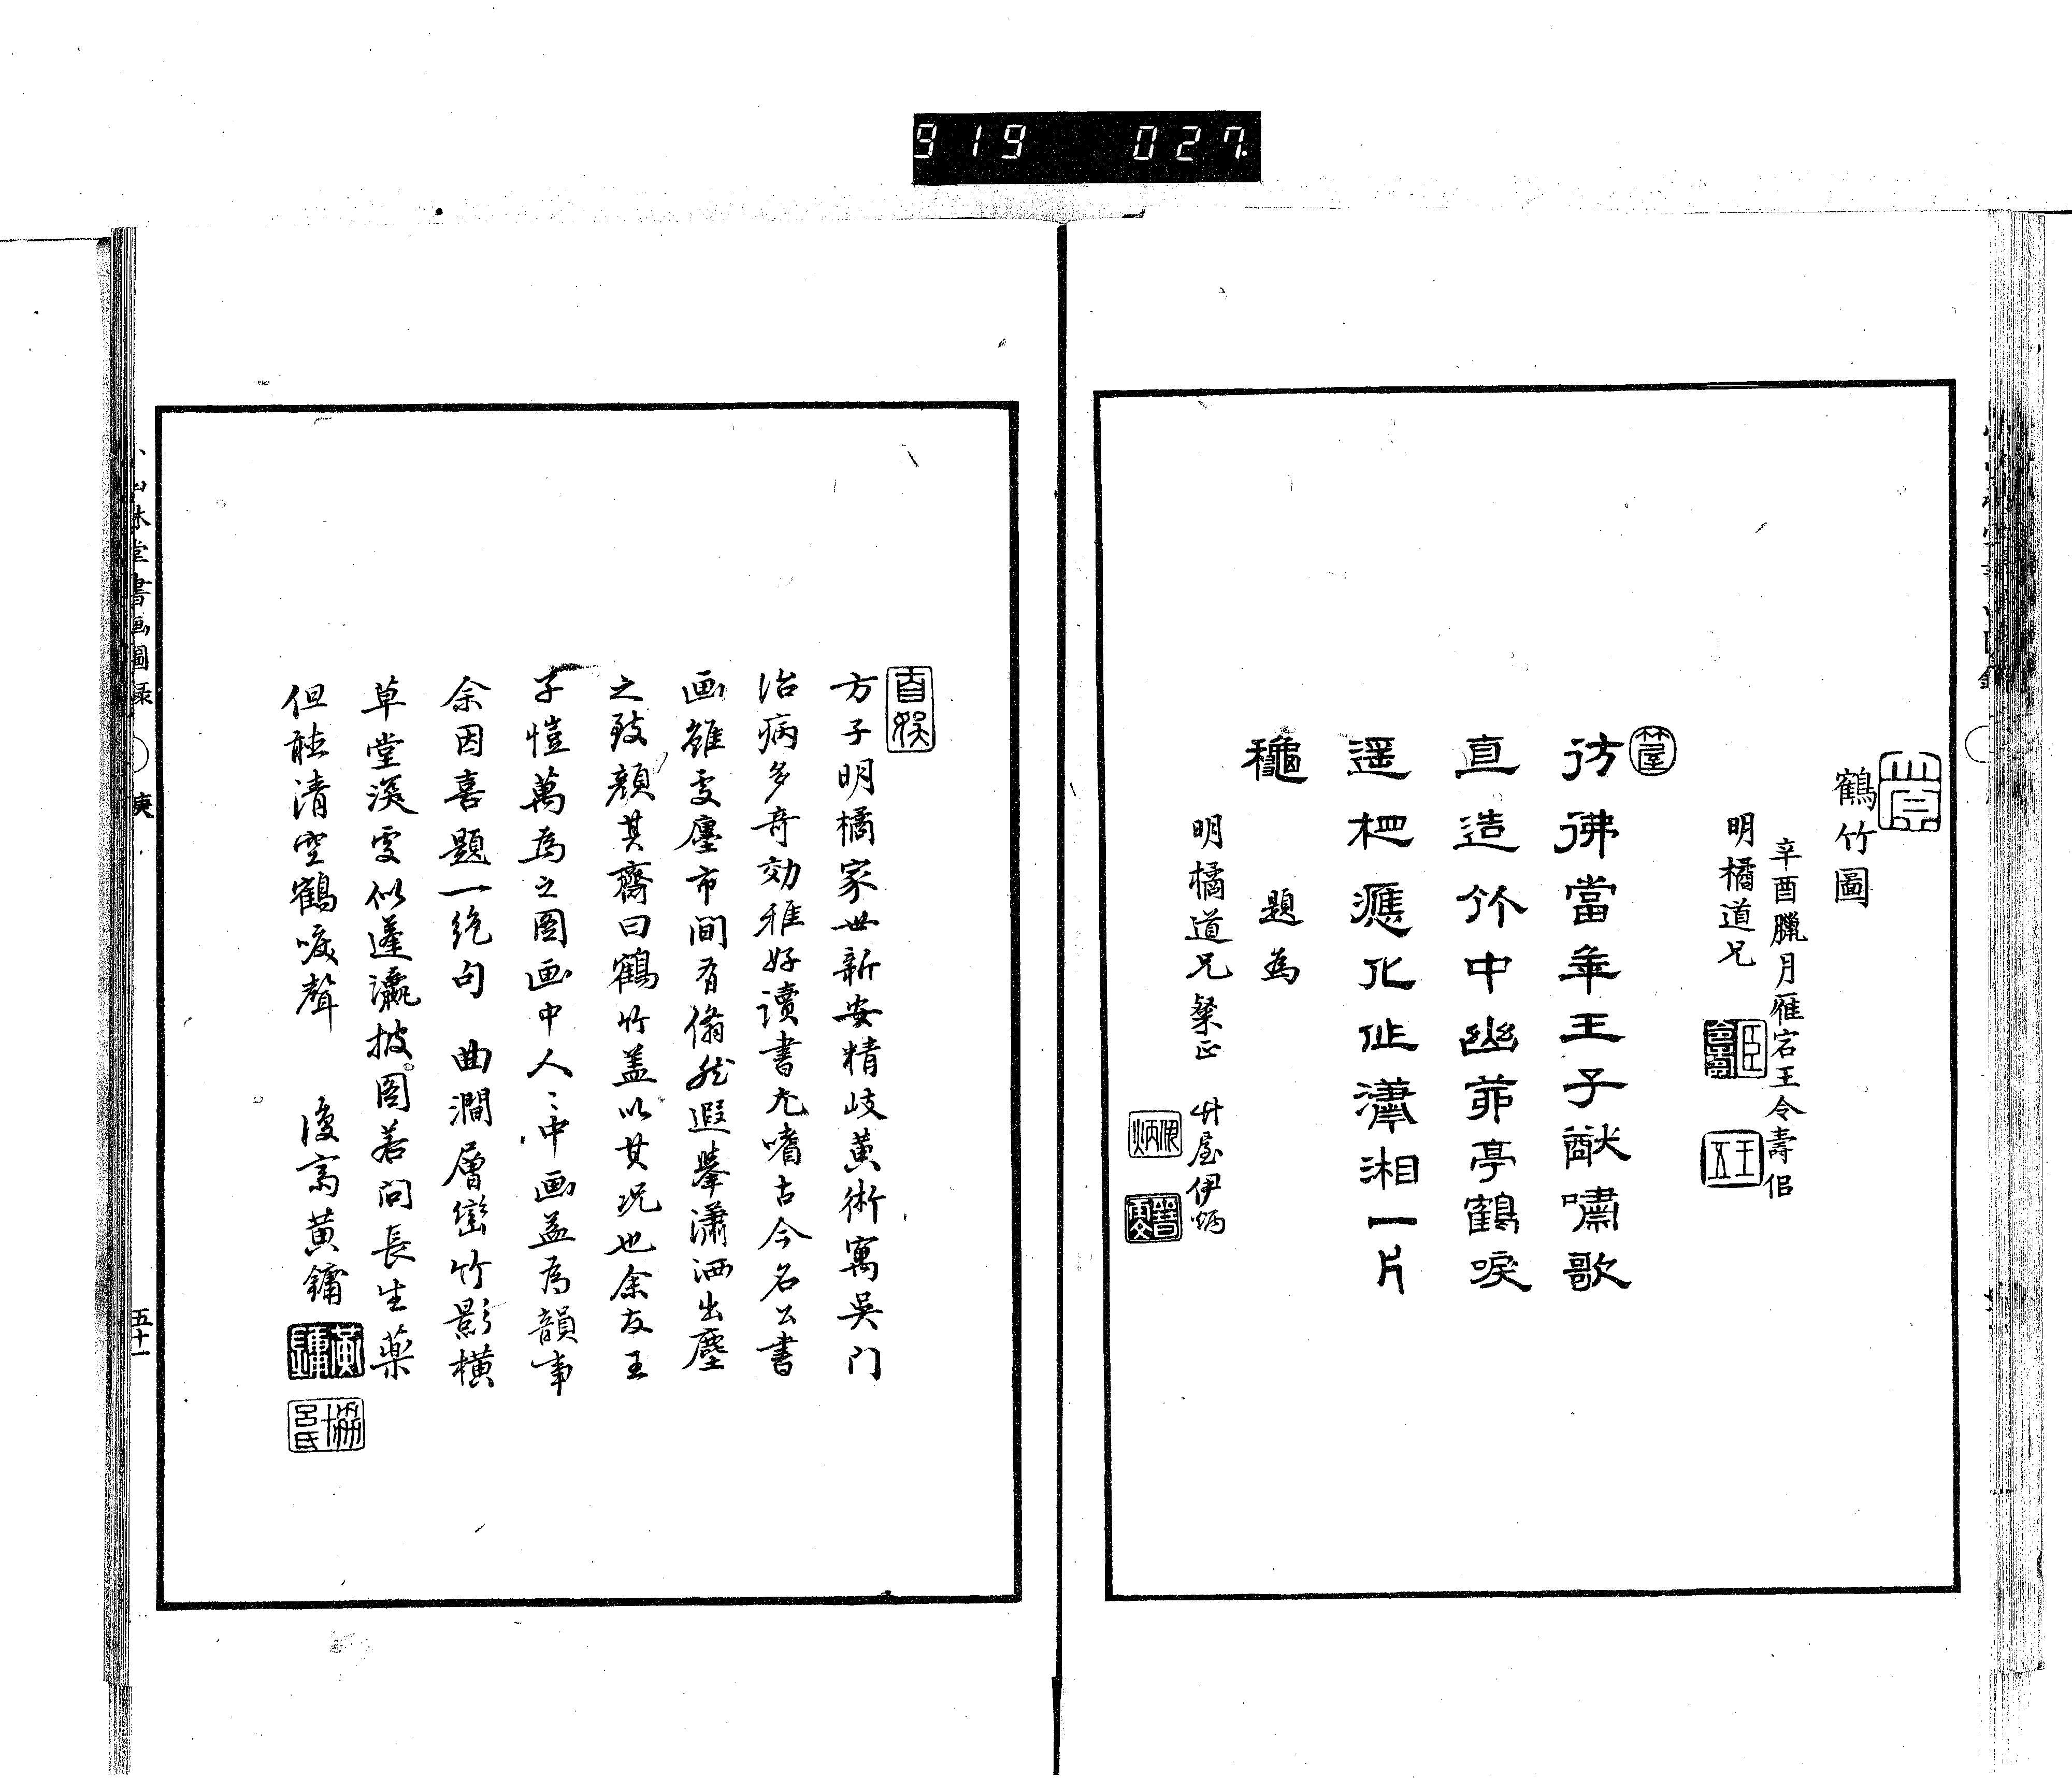 919 027
鶴竹圖
辛酉臘月雁宕王令壽佀
明橘道兄
彷彿當年王子猷嘯歌
直造竹中幽茆亭鶴唳
遥
應化作瀟湘一片
題為
明橘道兄粲正 竹屋伊炳
方子明橘家世新安精岐黄術寓吴门
治病多奇効雅好讀書尤嗜古今名公書
画雖䖏廛市间有翛然遐舉瀟洒出塵
之致顔其齋曰鶴竹盖以其况也余友王
子愷萬為之图画中人〻中画盖為韻事
余因喜題一绝句 曲澗層巒竹影横
草堂深䖏似蓬瀛披图若问長生藥
但聼清空鶴唳聲 復斋黄鏞
小山林堂書画圖録 庚 五十一